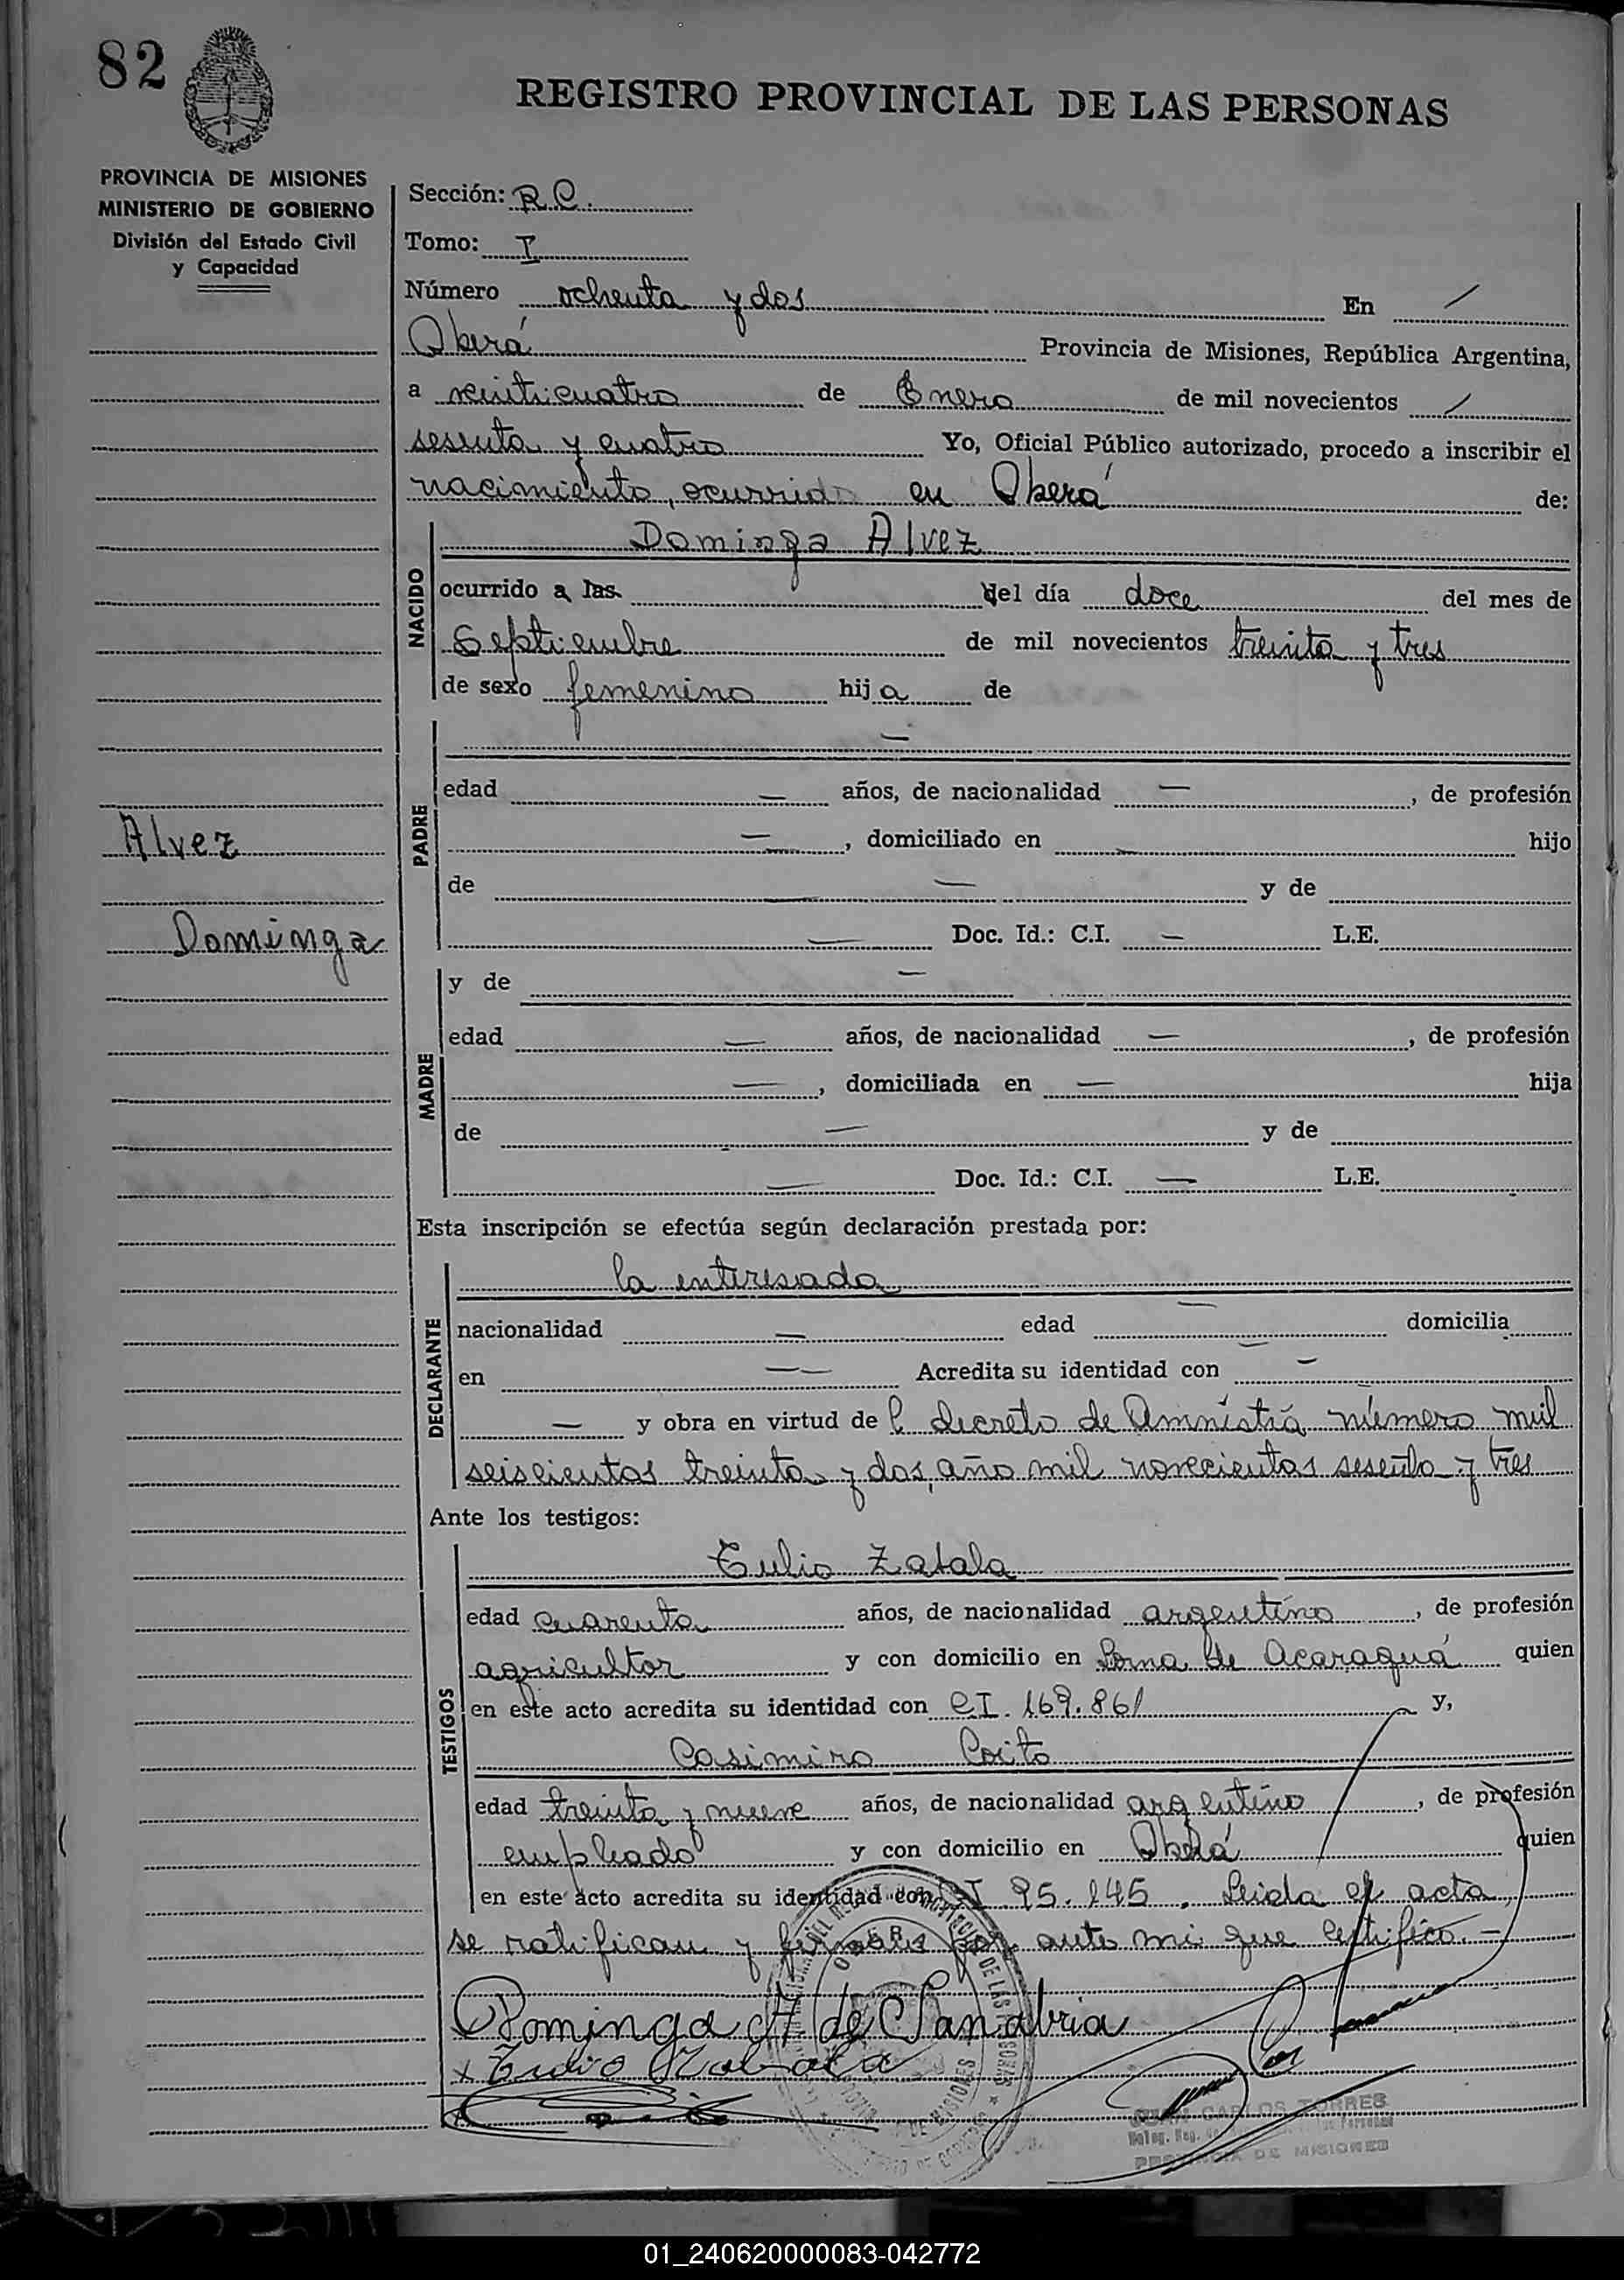 82
REGISTRO PROVINCIAL DE LAS PERSONAS
PROVINCIA DE MISIONES
MINISTERIO DE GOBIERNO
División del Estado Civil
y Capacidad
Sección: R.C.
Tomo: I
Número ochenta y dos En /
Oberá Provincia de Misiones, República Argentina,
a veinticuatro de Enero de mil novecientos /
sesenta y cuatro Yo, Oficial Público autorizado, procedo a inscribir el
nacimiento, ocurrido en Oberá de:
NACIDO
Dominga Alvez
ocurrido a las del día doce del mes de
Septiembre de mil novecientos treinta y tres
de sexo femenino hija de
PADRE
—
edad — años, de nacionalidad —, de profesión
—, domiciliado en — hijo
de — y de
— Doc. Id.: C.I. — L.E.
Alvez
Dominga
MADRE
y de —
edad — años, de nacionalidad —, de profesión
—, domiciliada en — hija
de — y de
— Doc. Id.: C.I. — L.E.
Esta inscripción se efectúa según declaración prestada por:
DECLARANTE
la interesada
nacionalidad — edad — domicilia —
en — — Acredita su identidad con —
— y obra en virtud del decreto de Amnistía número mil
seiscientos treinta y dos, año mil novecientos sesenta y tres
Ante los testigos:
TESTIGOS
Tulio Zabala
edad cuarenta años, de nacionalidad argentino, de profesión
agricultor y con domicilio en Loma de Acaraguá quien
en este acto acredita su identidad con CI. 169.861 y,
Casimiro Coito
edad treinta y nueve años, de nacionalidad argentino, de profesión
empleado y con domicilio en Oberá quien
en este acto acredita su identidad con CI 95.145. Leida el acta,
se ratifican y firman por ante mi que certifico.—
Dominga A de Sanabria
x Tulio Zabala
JUAN CARLOS TORRES
PROVINCIA DE MISIONES
01_240620000083-042772